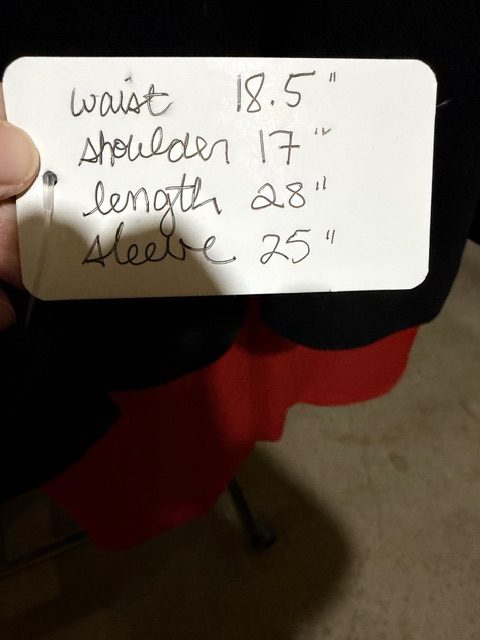 waist 18.5"
shoulder 17"
length 28"
sleeve 25"